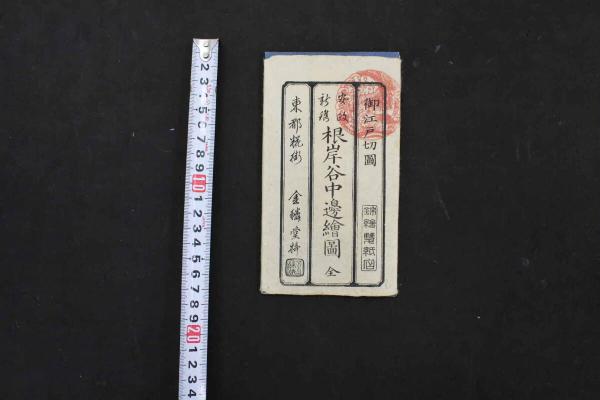 御江戸切圖
安政
新鐫
根岸谷中邊繪圖 全
東都糀街 金鱗堂梓
2 3 4 5 6 7 8 9 10 1 2 3 4 5 6 7 8 9 20 1 2 3 4